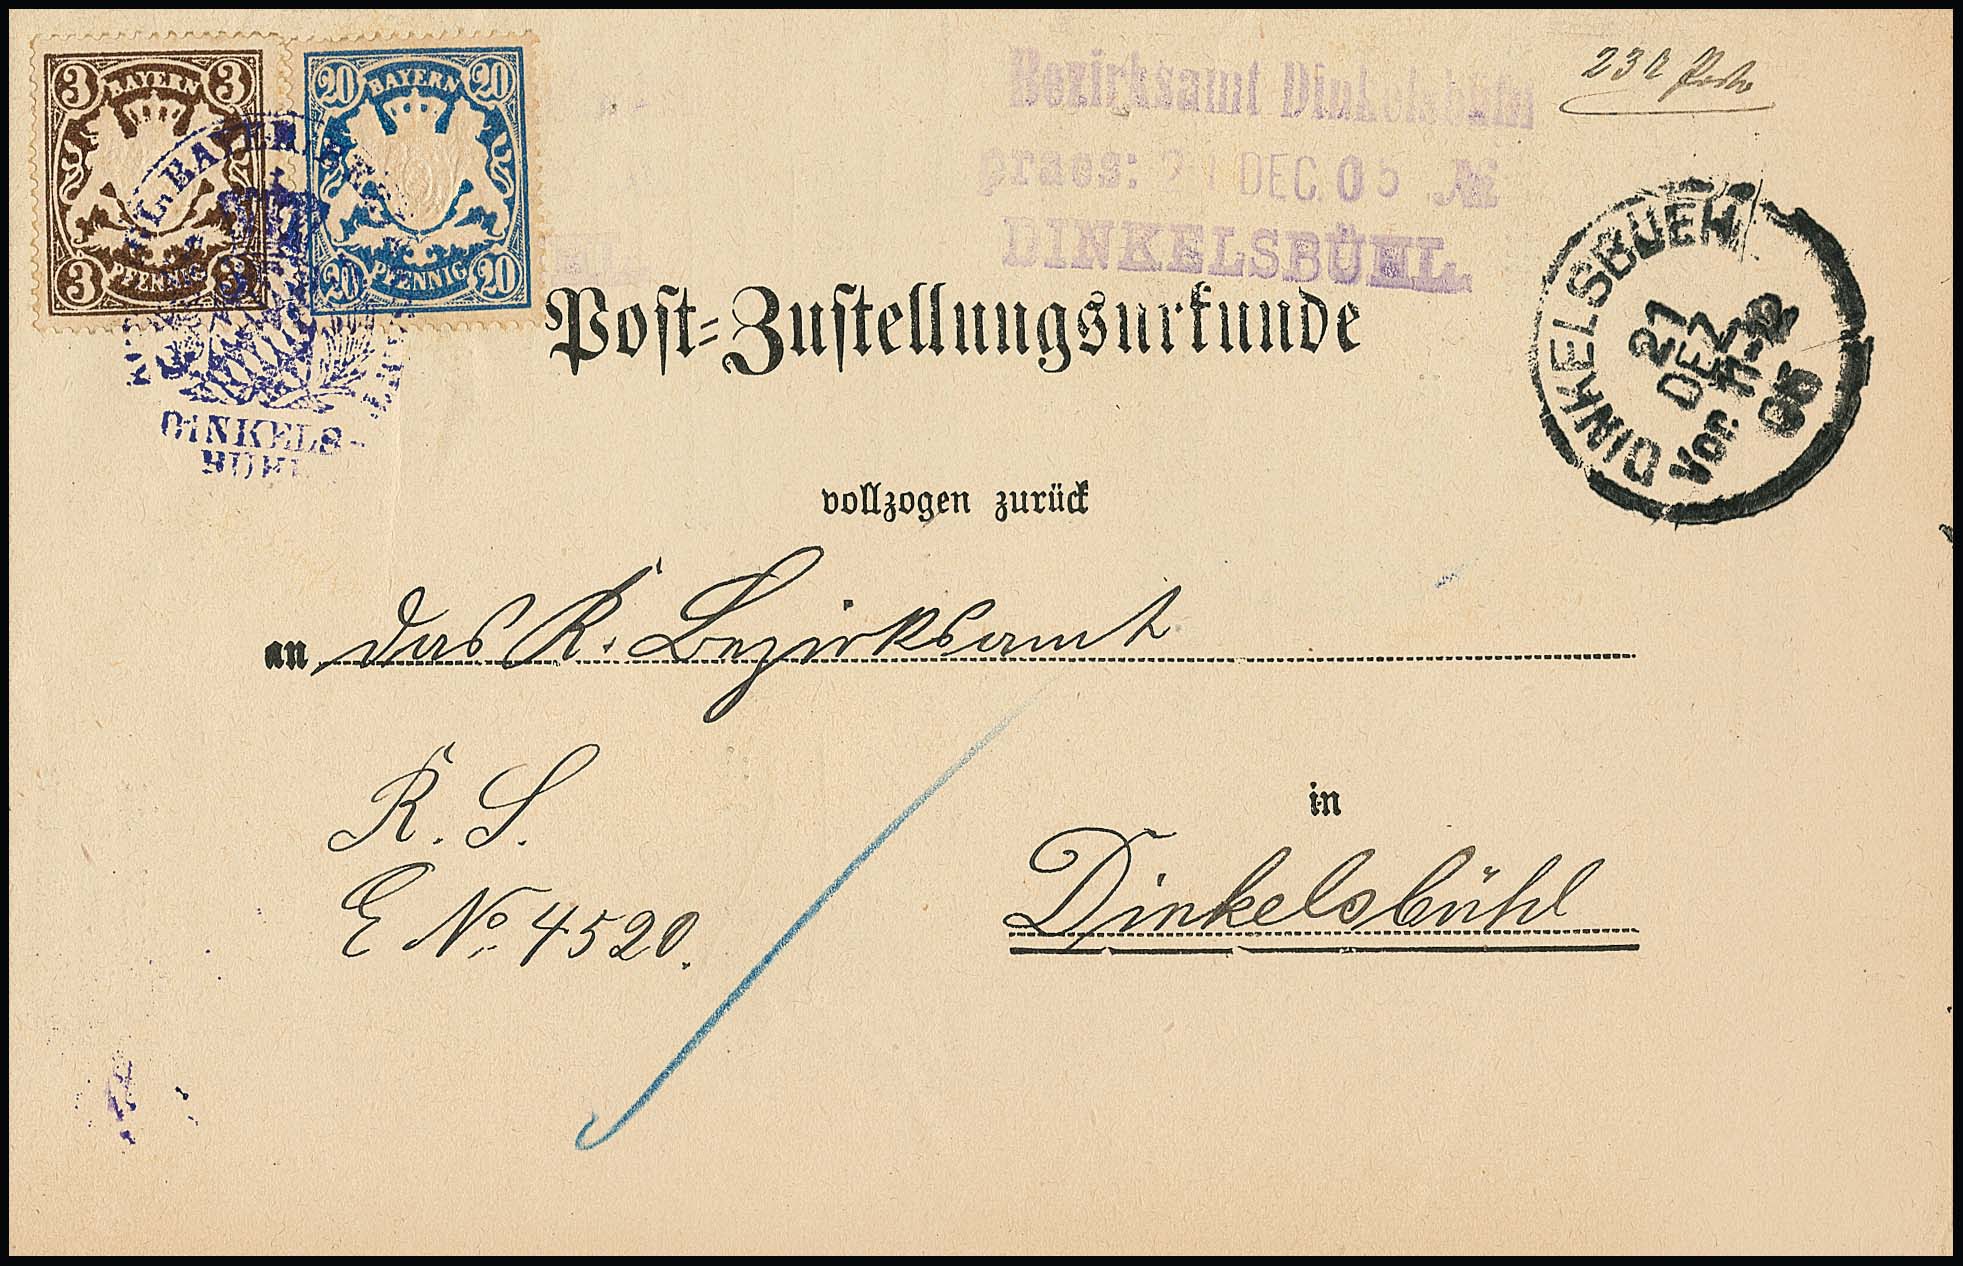 3 BAYERN 3
3 PFENNIG 3
20 BAYERN 20
20 PFENNIG 20
DINKELS-
BÜHL
Bezirksamt Dinkelsbühl
praes: 21 DEC. 05 №
DINKELSBÜHL.
23 ₰ Porto
DINKELSBUEHL
21
DEZ
Vor. 11-12
05
Post-Zustellungsurkunde
vollzogen zurück
an das K. Bezirksamt
R. S.
E No. 4520.
in
Dinkelsbühl